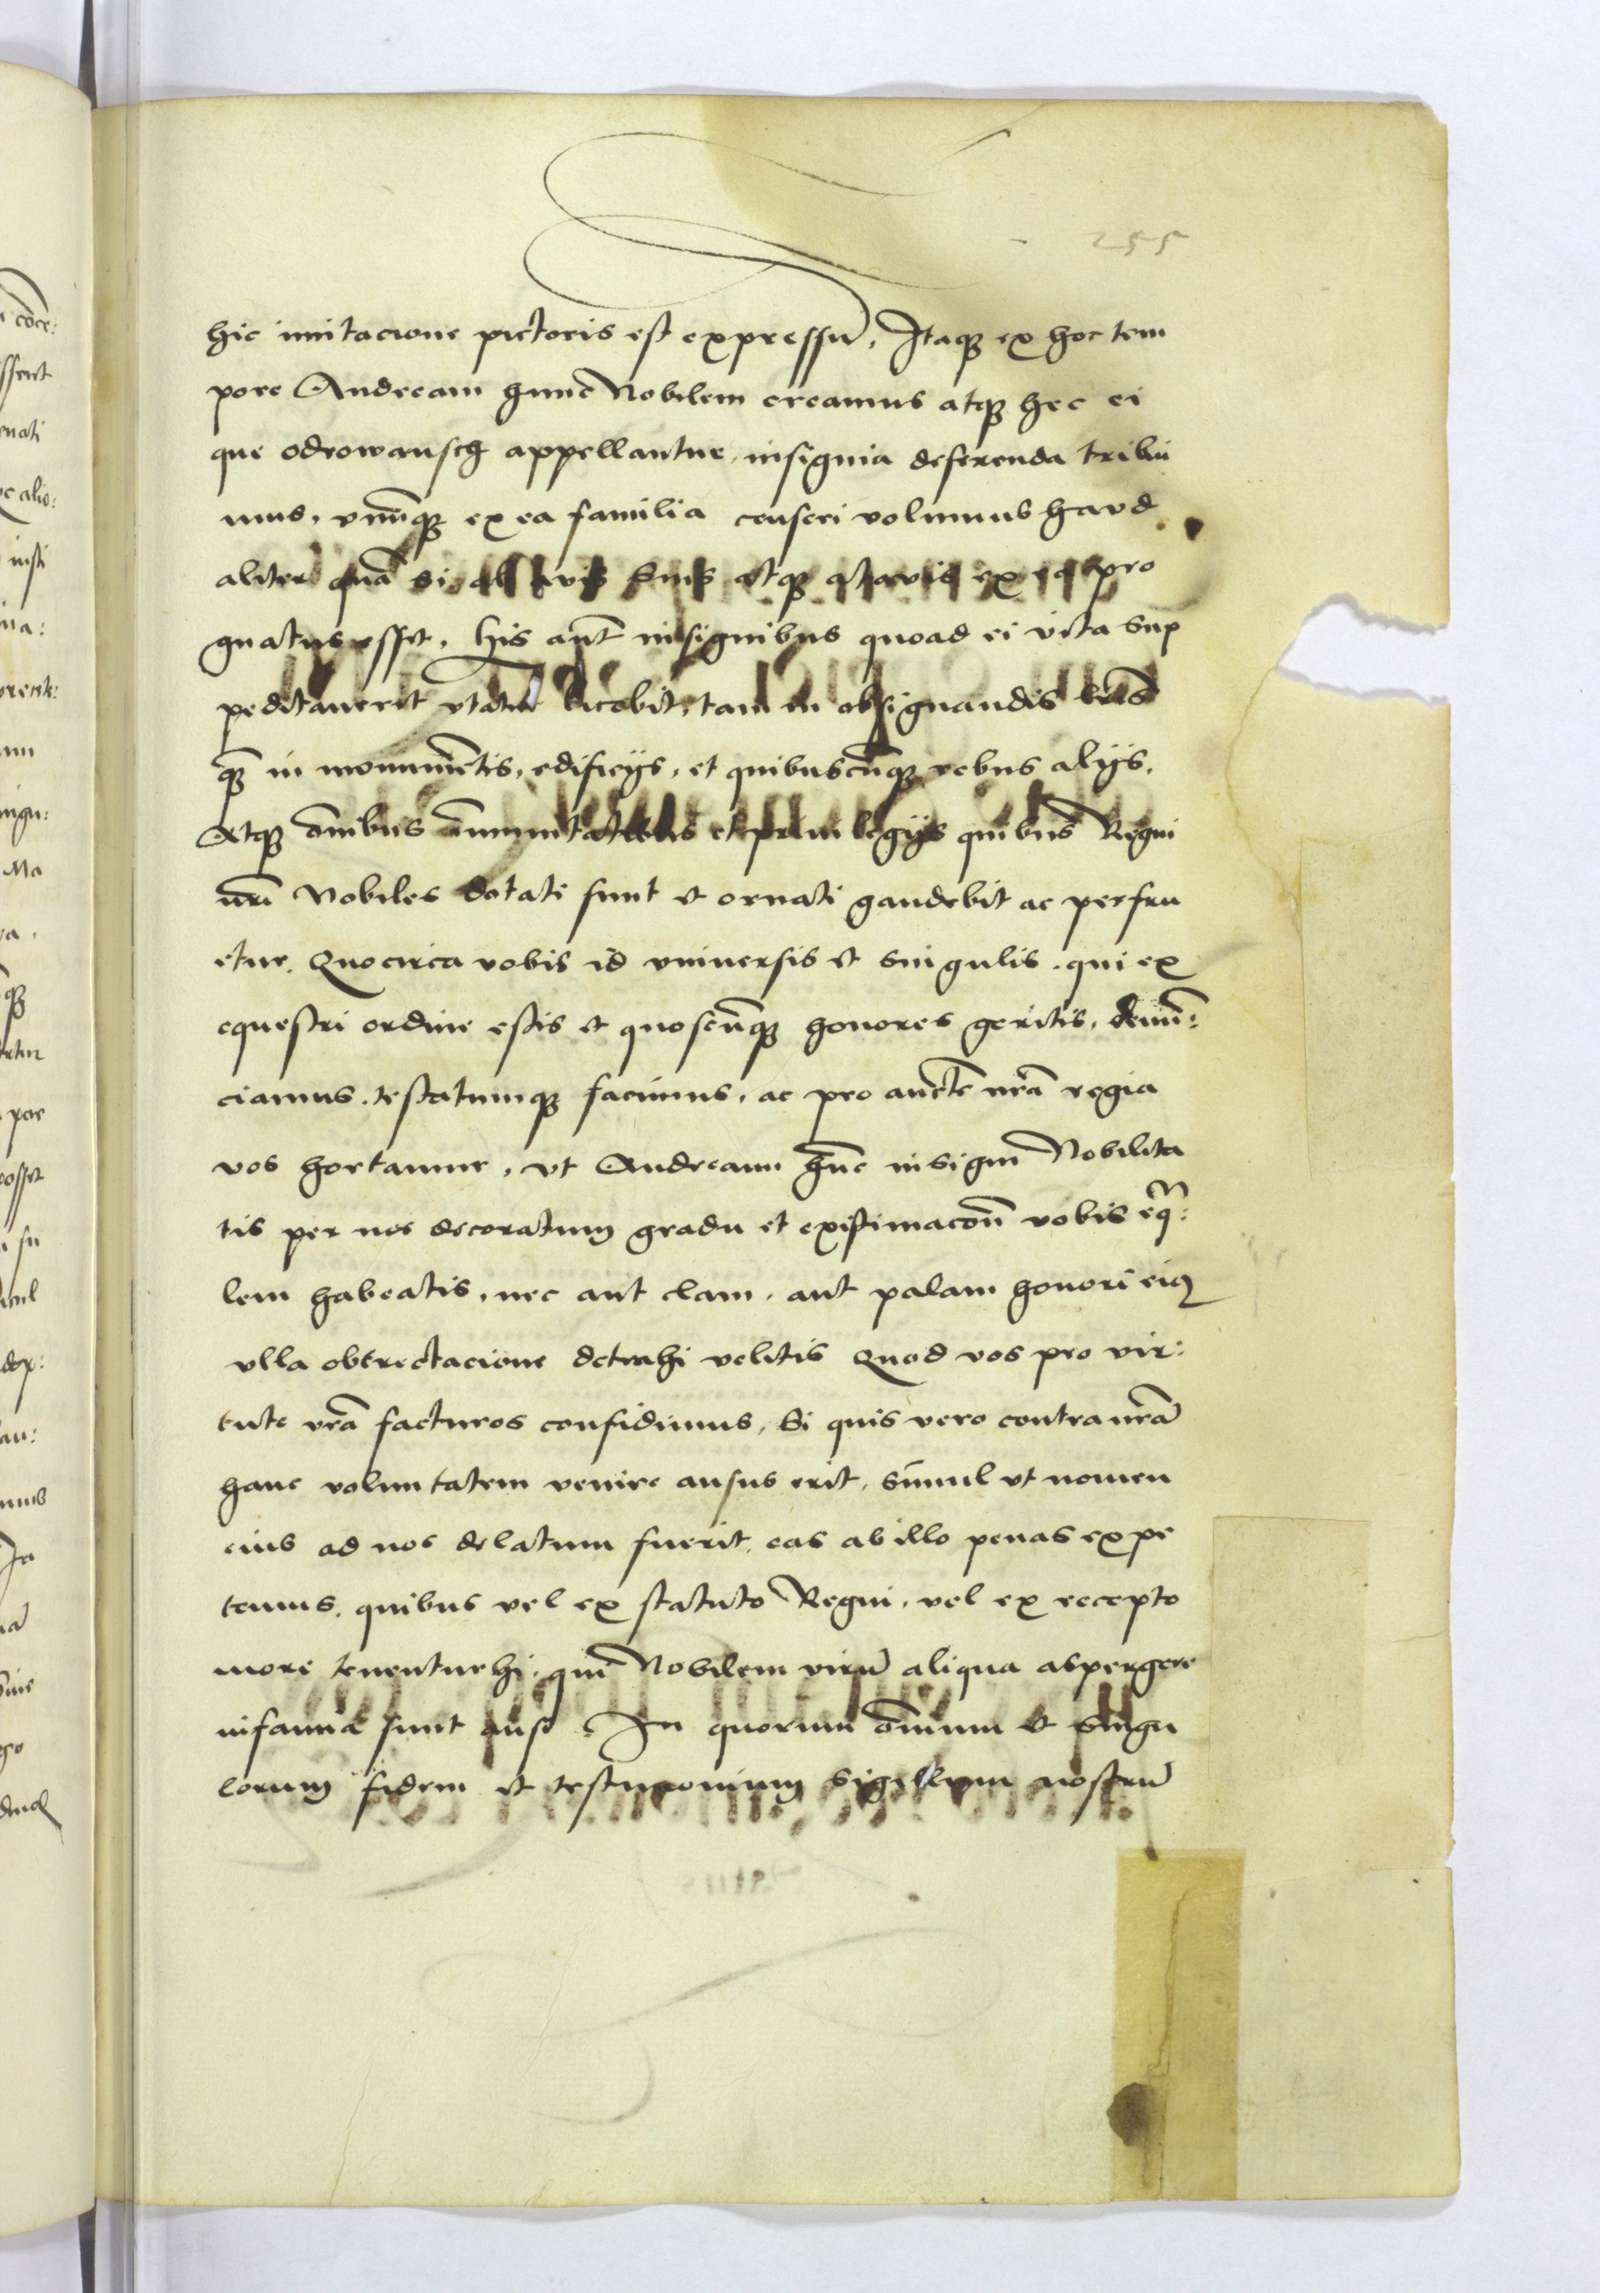 255
hic imitacione pictoris est expressū, Itaqꝫ ex hoc tem
pore Andream hunc Nobilem creamus atqꝫ hec ei
que odrowansch appellantur, insignia deferenda tribui
mus, vnūqꝫ ex ea familia censeri volumus haud
aliter quā si ab avis suis atqꝫ atavis ex ea pro
gnatus esset. His aūt insignibus quoad ei vita sup
peditauerit vtatur licebit, tam in obsignandis lrīs
qꝫ in monumētis, edificijs, et quibuscūqꝫ rebus alijs.
Atqꝫ oīnibus īmmunitatibus et priuilegijs quibus Regni
nrī Nobiles dotati sunt et ornati gaudebit ac perfru
etur. Quocirca vobis id vniuersis et singulis. qui ex
equestri ordine estis et quoscūqꝫ honores geritis, denūː
ciamus. testatumqꝫ facimus, ac pro auctē nrā regia
vos hortamur, vt Andream hūc insigni Nobilita
tis per nos decoratum gradu et existimacōn vobis eqᷓː
lem habeatis, nec aut clam, aut palam honori eiꝰ
vlla obtrectacione detrahi velitis Quod vos pro virː
tute vrā facturos confidimus, Si quis vero contra nrā
hanc voluntatem venire ausus erit, simul vt nomen
eius ad nos delatum fuerit, eas ab illo penas expe
temus, quibus vel ex statuto Regni, vel ex recepto
more tenentur hi, qui Nobilem virū aliqua aspergere
infamia sunt ausi. In quorum oīnium et singu
lorum fidem et testimonium sigillum nostrū